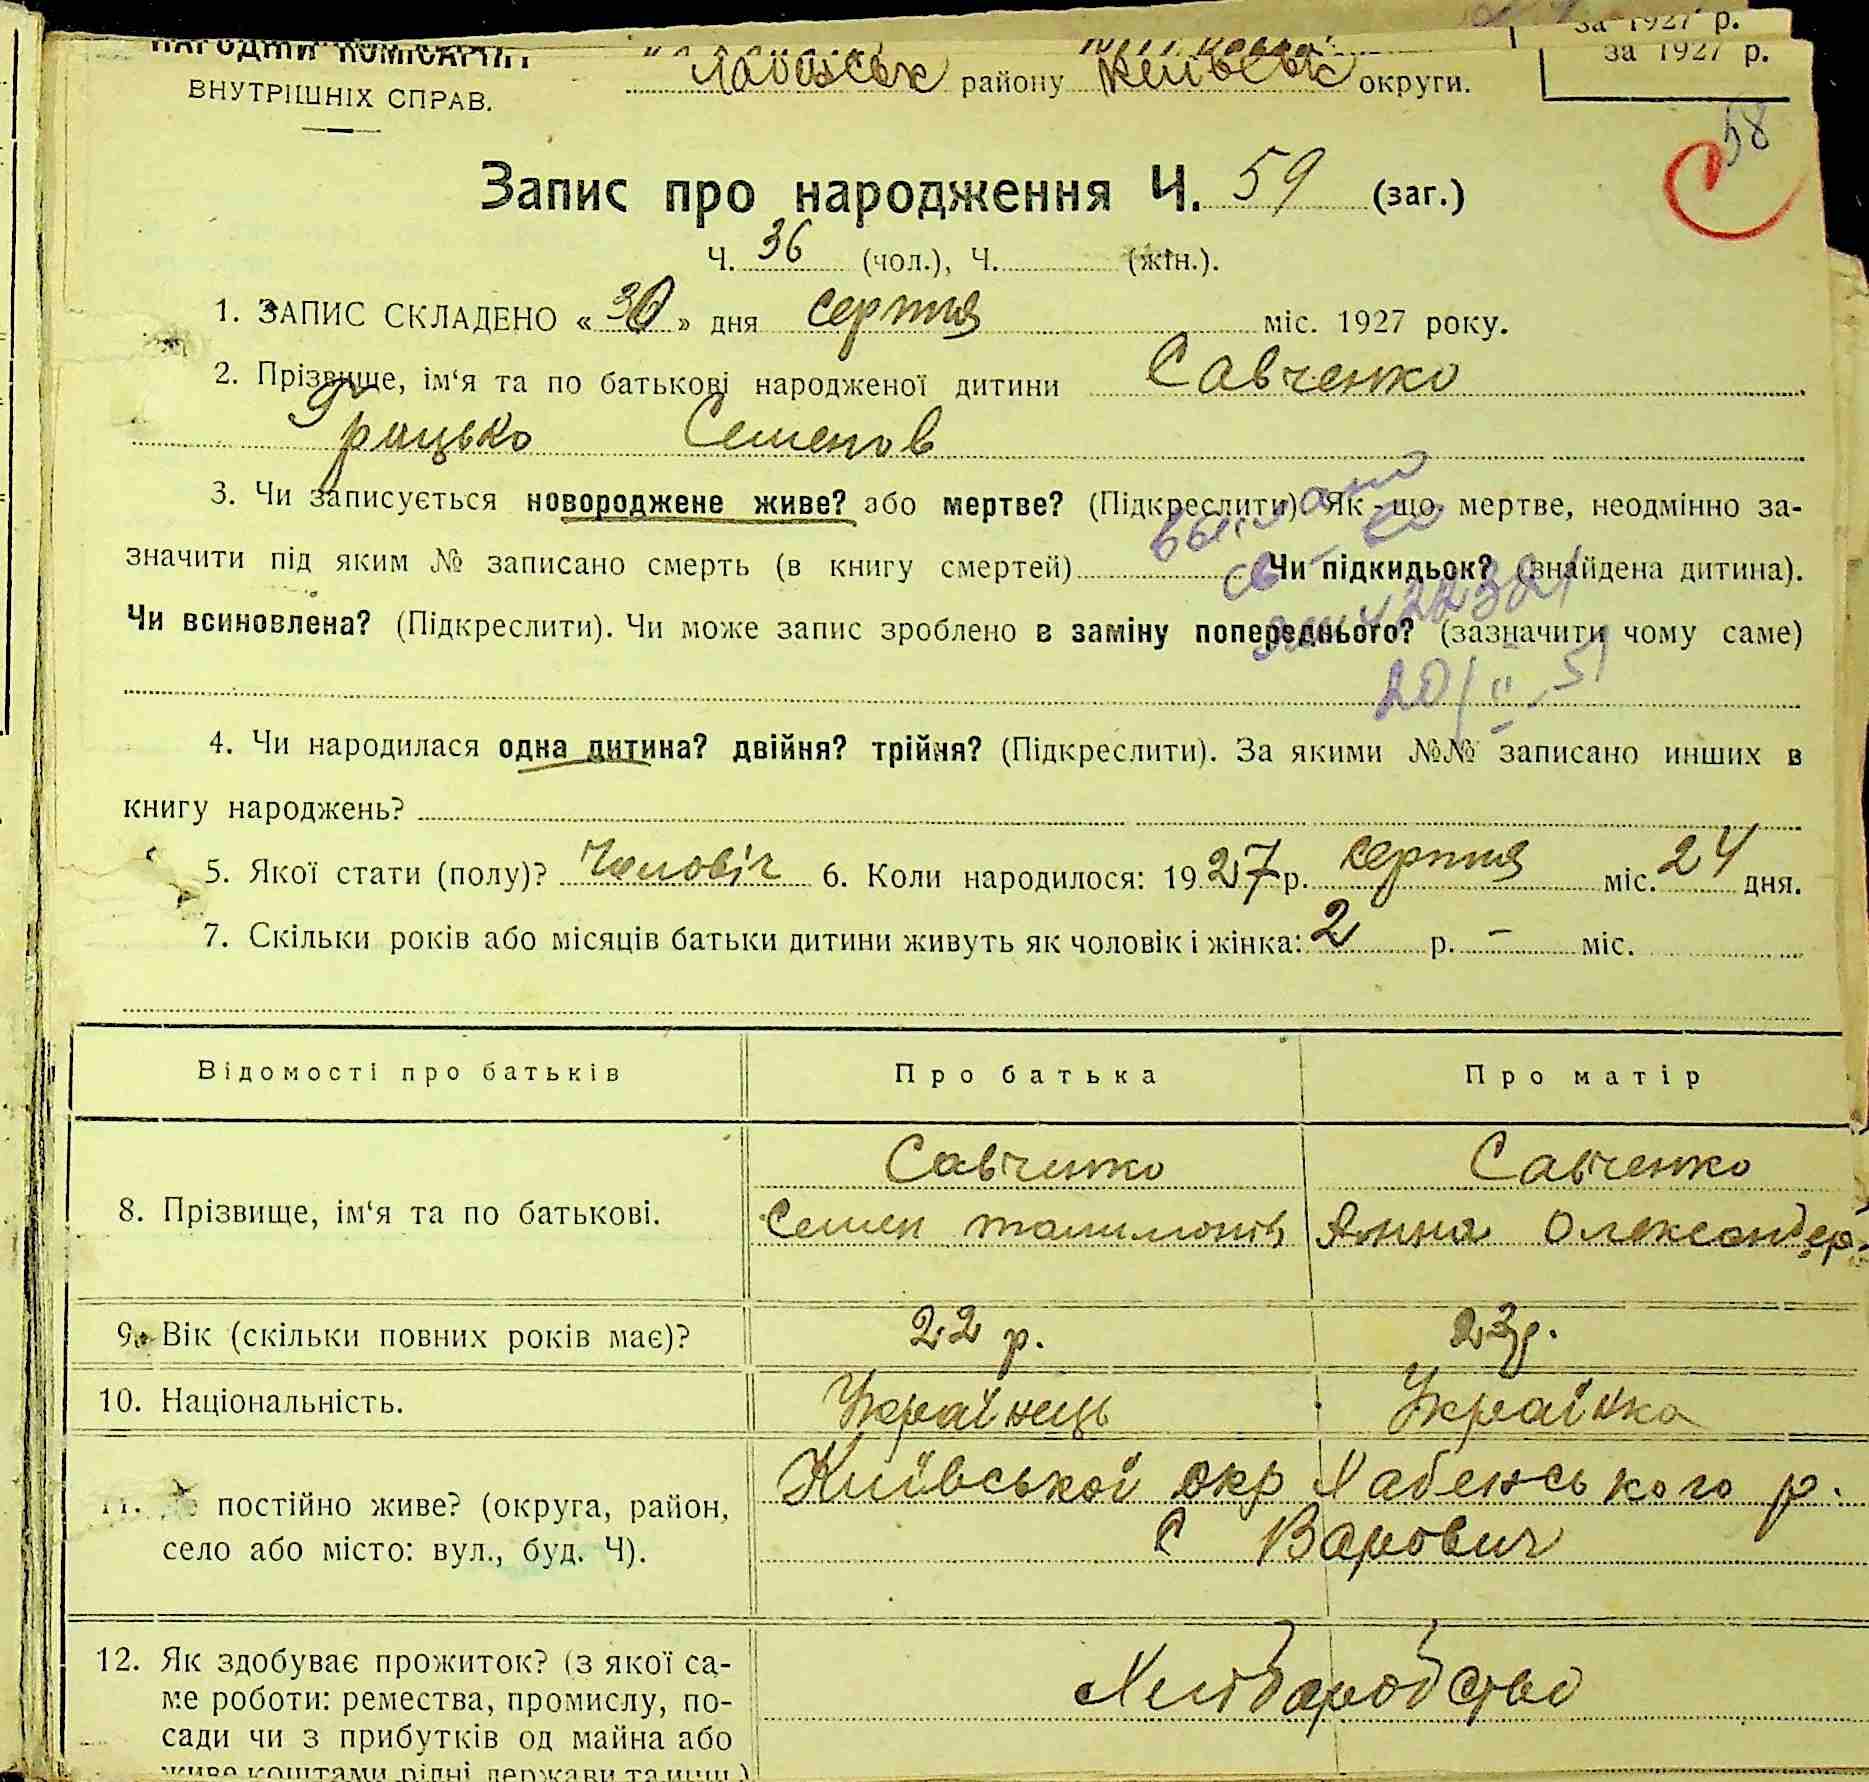 за 1927 р.
НАРОДНІЙ КОМІСАРІЯТ
за 1927 р.
ВНУТРІШНІХ СПРАВ.
району Київськ округи.
58
Запис про народження Ч. 59 (заг.)
Ч. 36 (чол.), Ч. (жін.).
1. ЗАПИС СКЛАДЕНО « 30 » дня серпня міс. 1927 року.
2. Прізвище, ім‘я та по батькові народженої дитини Савченко
Грицько Семенов
3. Чи записується новороджене живе? або мертве? (Підкреслити) Як-що мертве, неодмінно за-
значити під яким № записано смерть (в книгу смертей) Чи підкидьок? (знайдена дитина).
Чи всиновлена? (Підкреслити). Чи може запис зроблено в заміну попереднього? (зазначити чому саме)
20/II-51
4. Чи народилася одна дитина? двійня? трійня? (Підкреслити). За якими №№ записано инших в
книгу народжень?
5. Якої стати (полу)? Чоловіч 6. Коли народилося: 1927 р. серпня міс. 24 дня.
7. Скільки років або місяців батьки дитини живуть як чоловік і жінка: 2 р. – міс.
Відомості про батьків Про батька Про матір
Савченко Савченко
8. Прізвище, ім‘я та по батькові. Семен Талимонів Анна Олександер.
9. Вік (скільки повних років має)? 22 р. 23 р.
10. Національність. Українець Українка
Київської окр Хабенського р.
11. Де постійно живе? (округа, район,
село або місто: вул., буд. Ч). с Варович
12. Як здобуває прожиток? (з якої са-
ме роботи: ремества, промислу, по- Хліборобство
сади чи з прибутків од майна або
живе коштами рідні, держави та инш.)